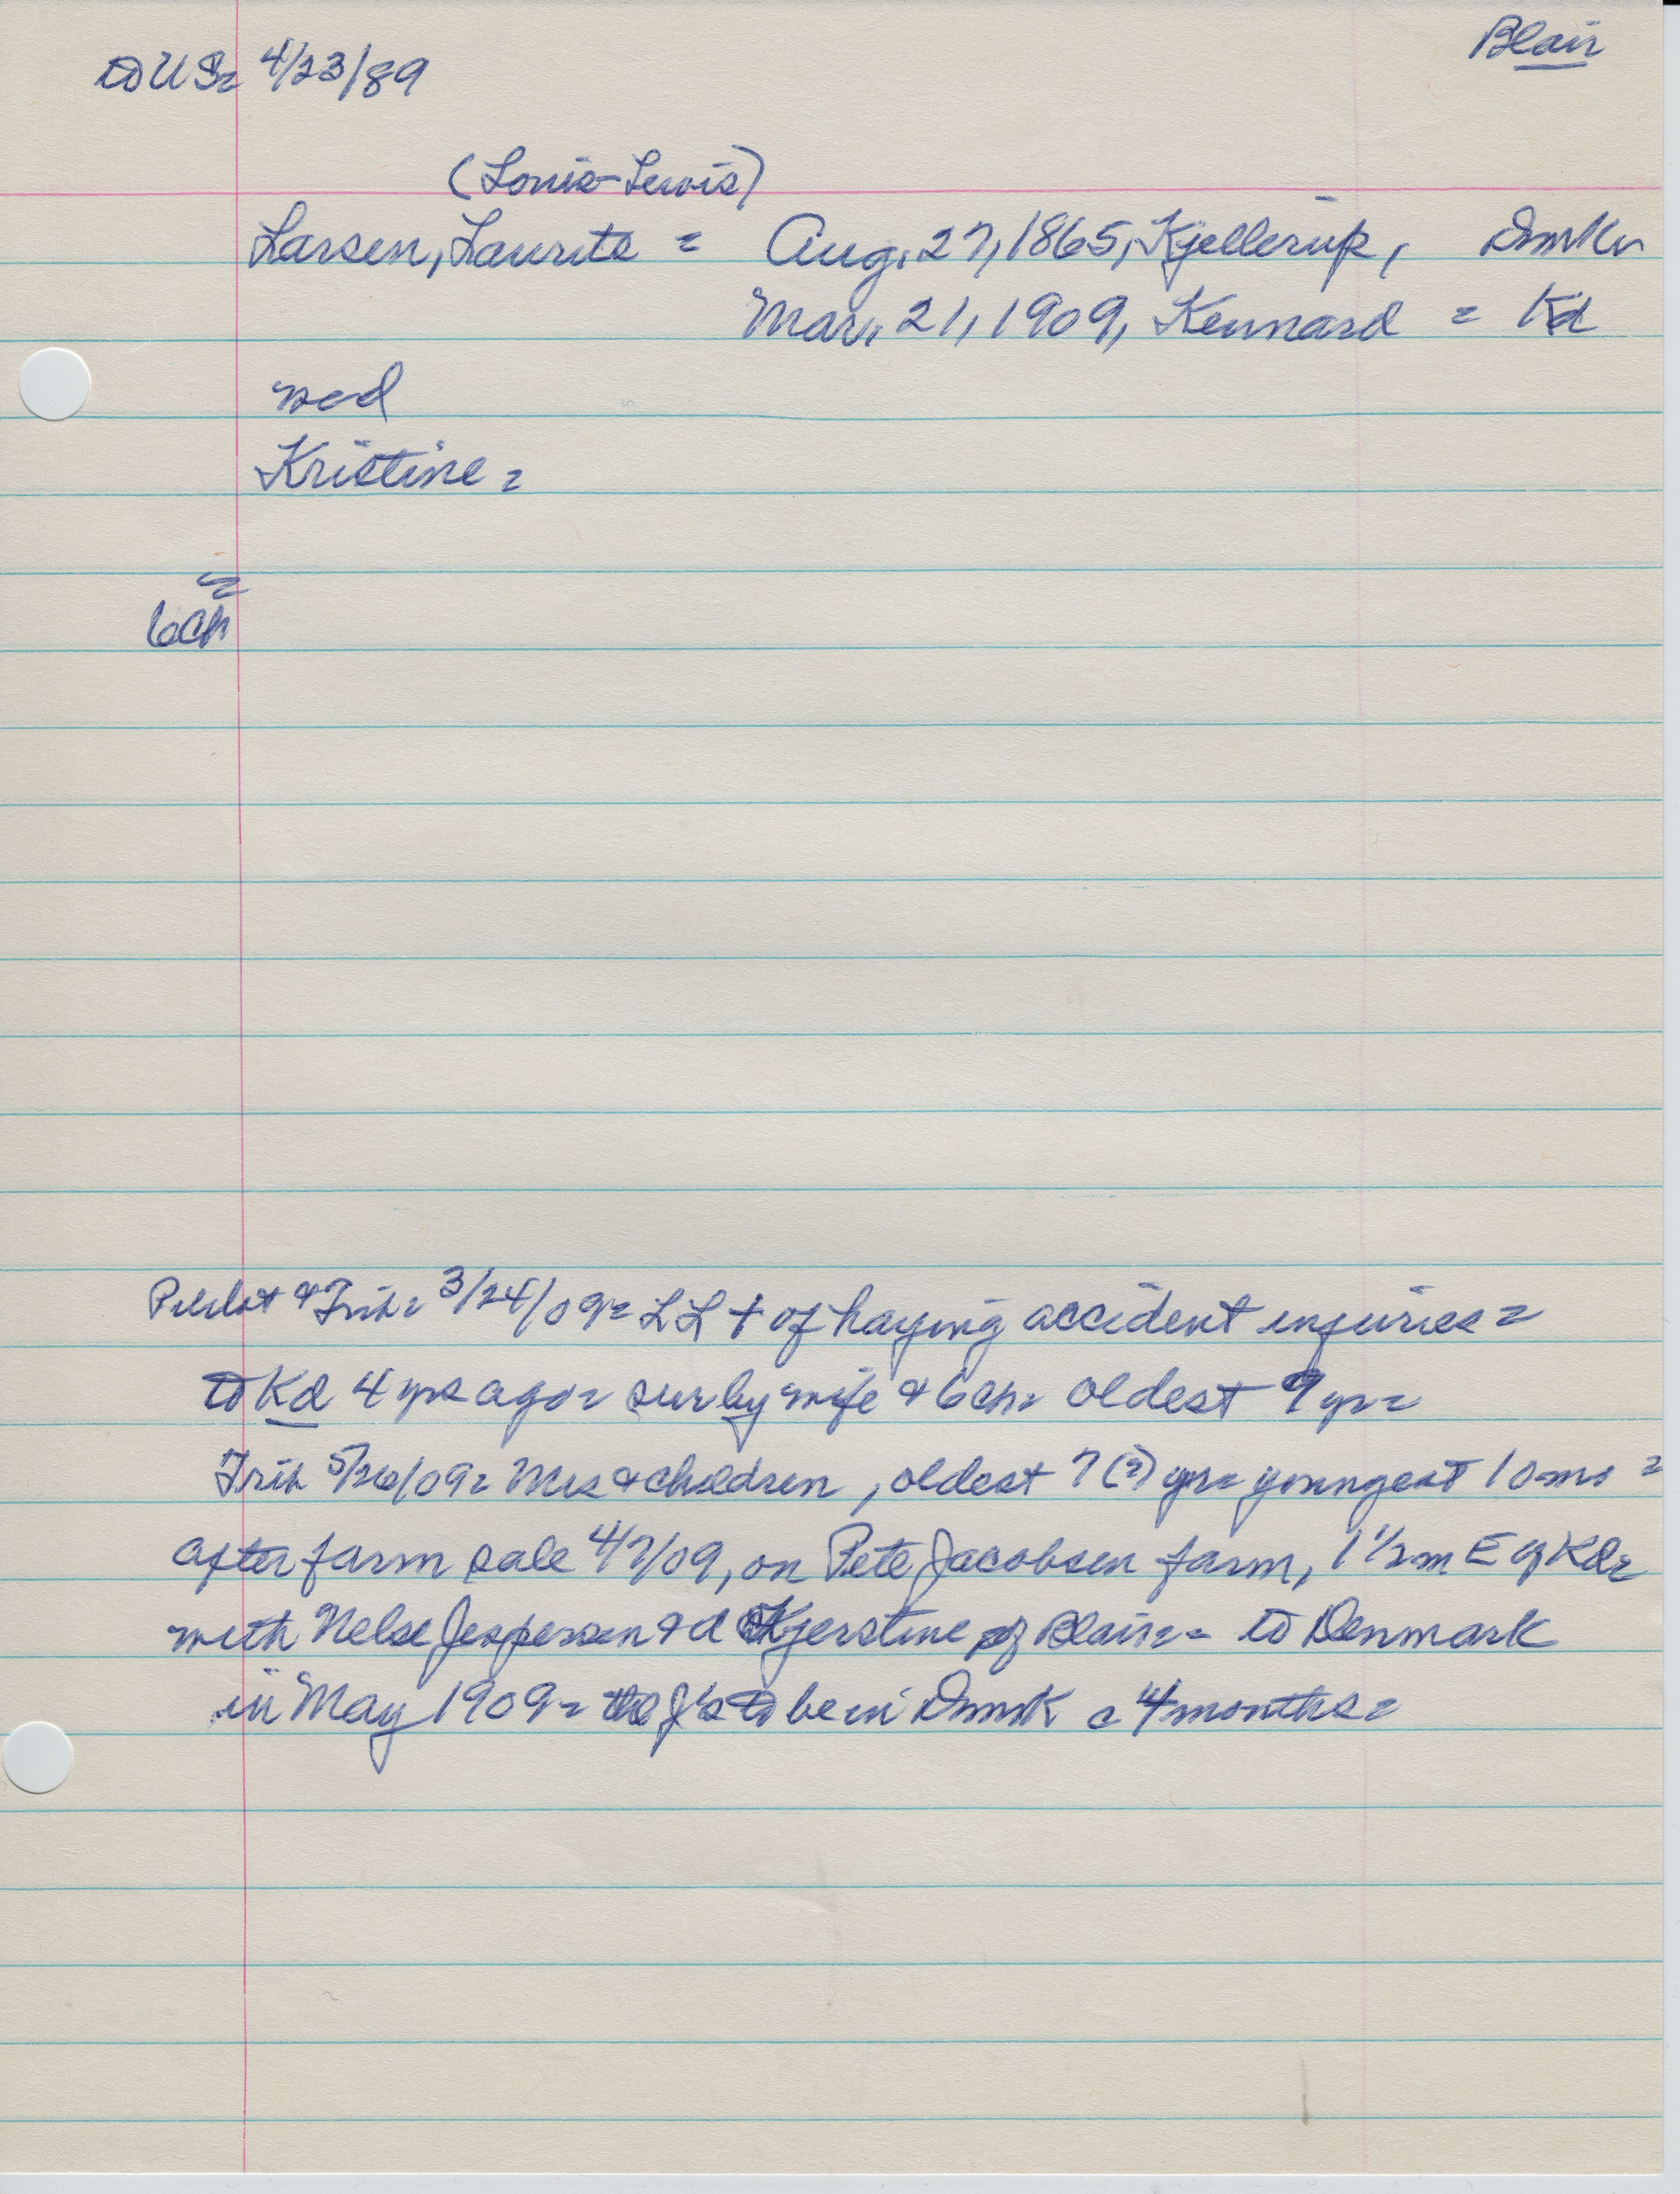 Blair
to US = 4/23/89
(Louis-Lewis)
Larsen, Laurits = Aug. 27, 1865, Kjellerup, Dmk
Mar. 21, 1909, Kennard = Kd
wed
Kristine =
=
6 ch
& Trib = 3/24/09 = LL + of haying accident injuries =
to Kd 4 yrs ago = sur by wife & 6 ch = oldest 9 yr =
Trib 5/26/09 = Mrs & children, oldest 7 (?) yr = youngest 10 mo =
after farm sale 4/7/09, on Pete Jacobsen farm, 1 1/2 m E of Kd =
with Nelse Jespersen & d Kjerstine of Blair = to Denmark
in May 1909 = the J's to be in Dmk c 4 months =